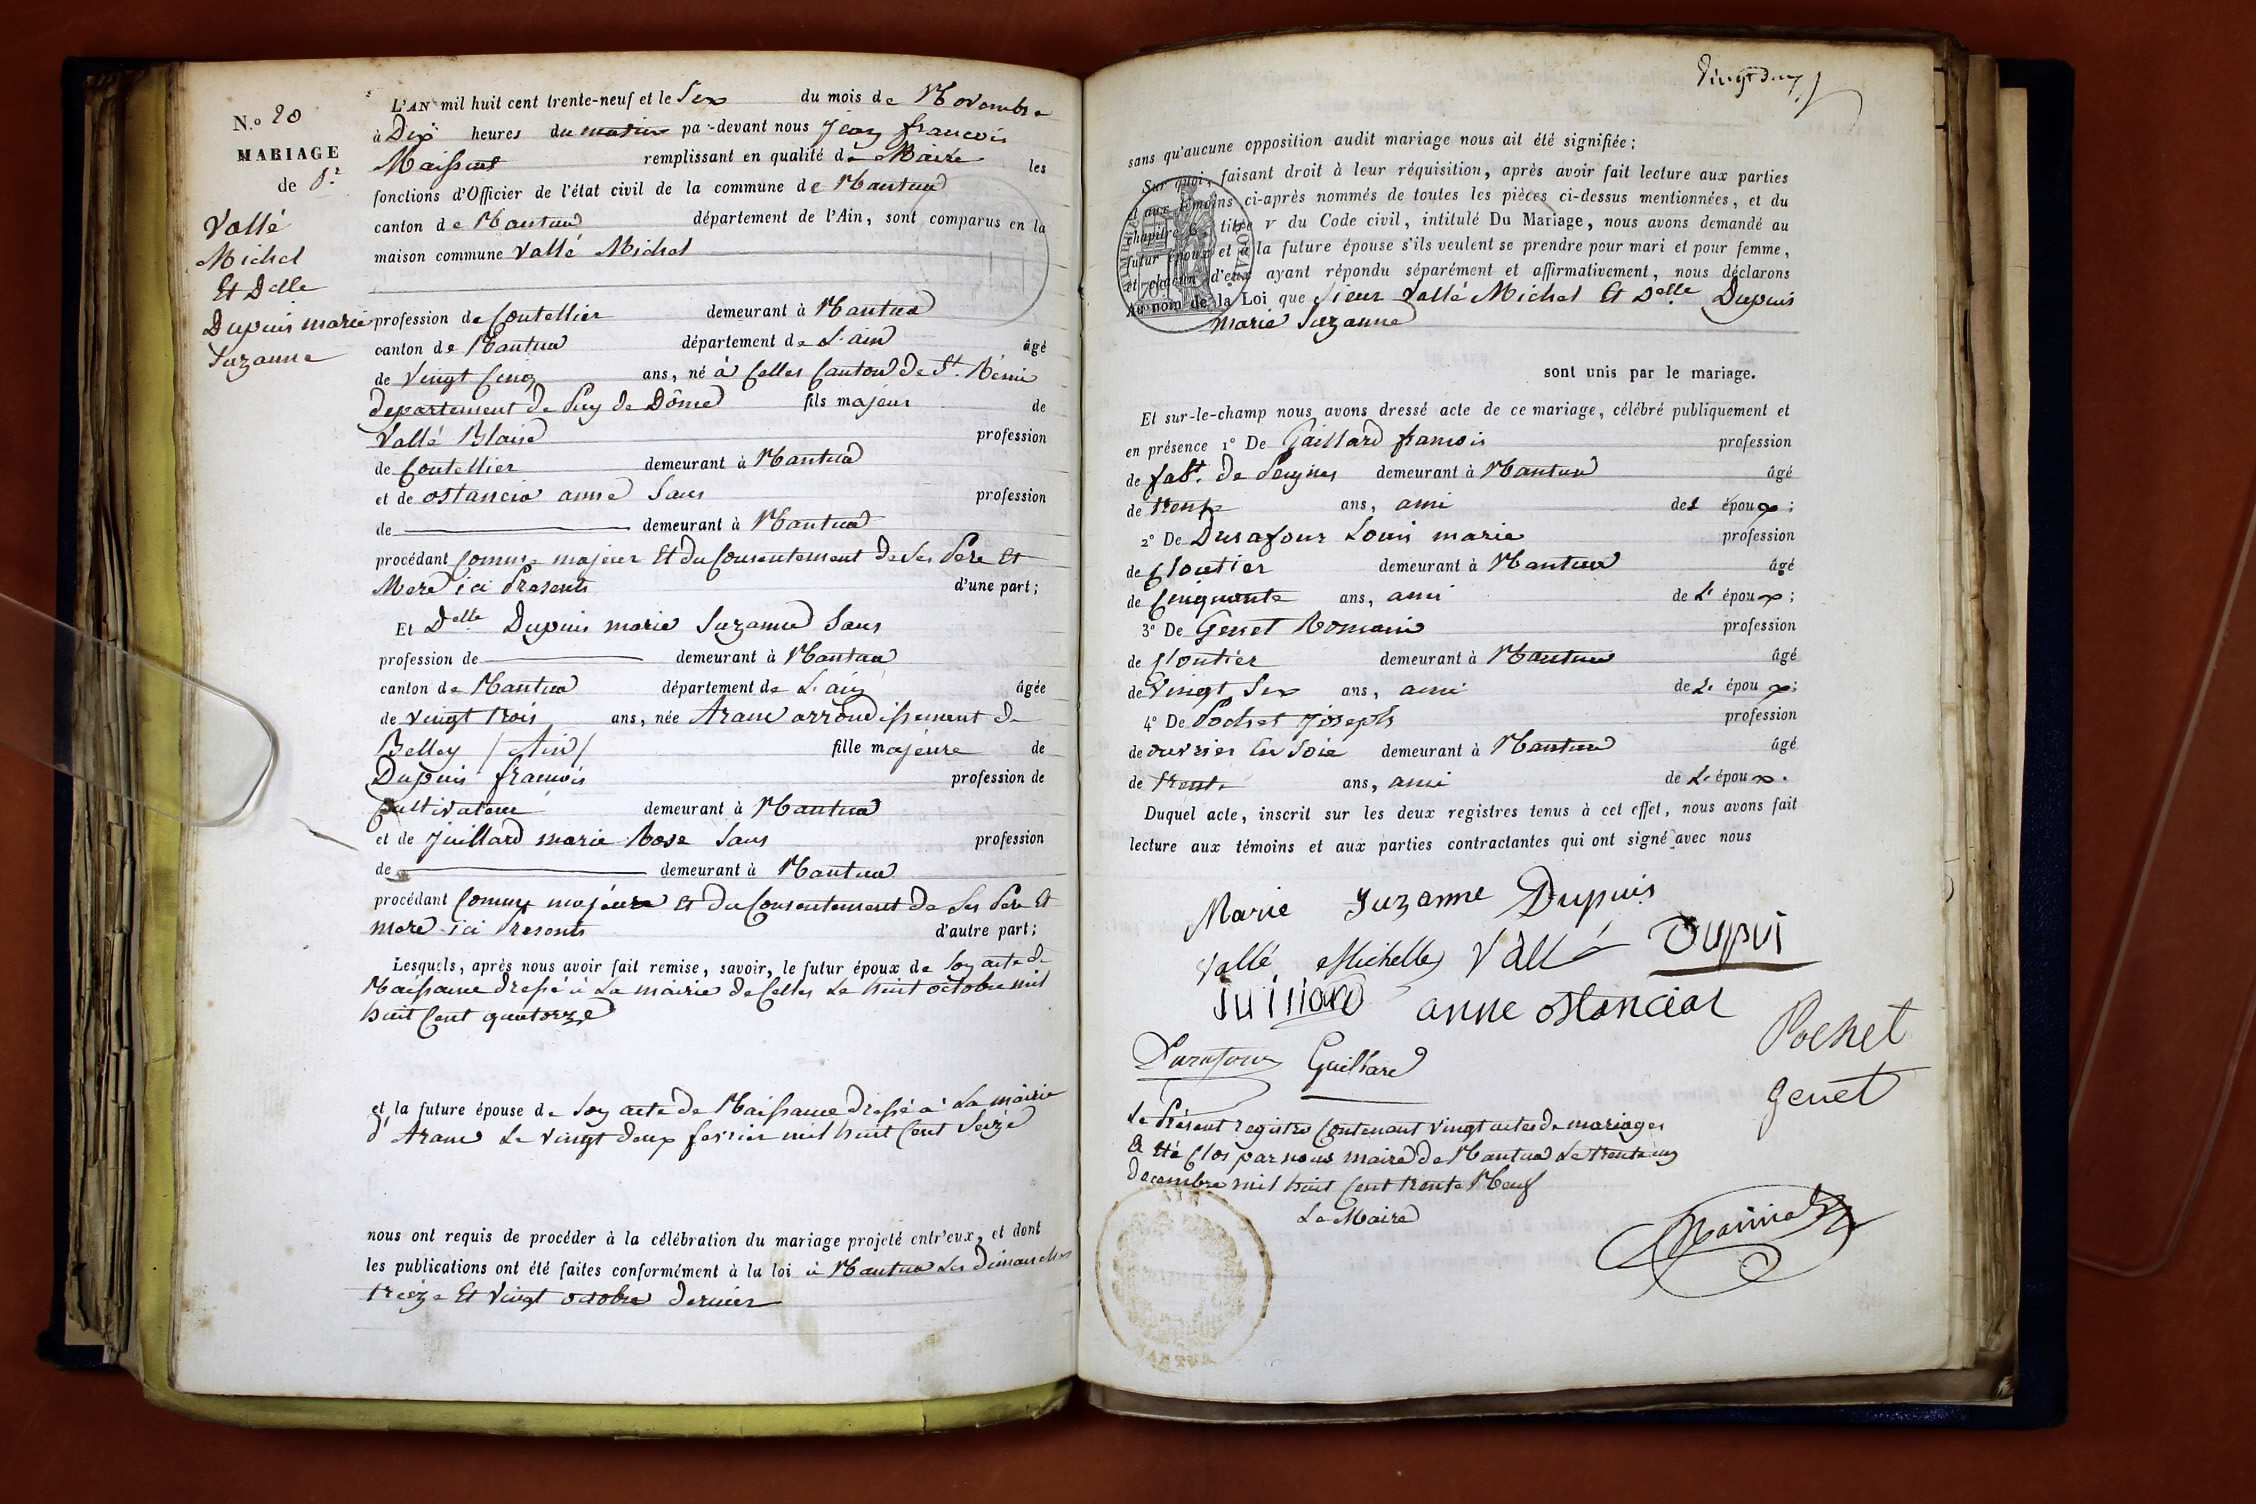 N.º 20
MARIAGE
de Sr
Vallé
Michel
Et Delle
Dupuis marie
Suzanne
L'AN mil huit cent trente-neuf et le Six du mois de Novembre
à Dix heures du matin par-devant nous Jean françois
remplissant en qualité de Maire les
fonctions d'Officier de l'état civil de la commune de Nantua
canton de Nantua département de l'Ain, sont comparus en la
maison commune Vallé Michel
profession de Coutellier demeurant à Nantua
canton de Nantua département de L'ain âgé
de Vingt Cinq ans, né à Celles Canton de St. Rémi
departement de Puy de Dôme fils majeur de
Vallé Blaise profession
de Coutellier demeurant à Nantua
et de Ostancia anne Sans profession
de demeurant à Nantua
procédant Comme majeur Et du Consentement de Ses Pere Et
Mere ici Presents d'une part;
Et Delle Dupuis marie Suzanne Sans
profession de demeurant à Nantua
canton de Nantua département de L'ain âgée
de vingt trois ans, née Aranc arrondissement de
Belley / Ain / fille majeure de
Dupuis francois profession de
Cultivateur demeurant à Nantua
et de Juillard marie Rose Sans profession
de demeurant à Nantua
procédant Comme majeure et du Consentement de Ses Pere Et
mere ici Presents d'autre part;
Lesquels, après nous avoir fait remise, savoir, le futur époux de Son acte de
Naissance dressé à La mairie de Celles Le huit octobre mil
huit Cent quatorze
et la future épouse de Son acte de Naissance dressé à La mairie
d'Aranc Le vingt deux fevrier mil huit Cent Seize
nous ont requis de procéder à la célébration du mariage projeté entr'eux, et dont
les publications ont été faites conformément à la loi à Nantua Les dimanches
treize Et Vingt octobre dernier
vingt deux
sans qu'aucune opposition audit mariage nous ait été signifiée;
Sur quoi, faisant droit à leur réquisition, après avoir fait lecture aux parties
et aux témoins ci-après nommés de toutes les pièces ci-dessus mentionnées, et du
chapitre 6, titre v du Code civil, intitulé Du Mariage, nous avons demandé au
futur époux et à la future épouse s'ils veulent se prendre pour mari et pour femme,
et chacun d'eux ayant répondu séparément et affirmativement, nous déclarons
Au nom de la Loi que Sieur Vallé Michel Et Delle Dupuis
marie Suzanne
sont unis par le mariage.
Et sur-le-champ nous avons dressé acte de ce mariage, célébré publiquement et
en présence 1º De Gaillard francois profession
de fabt. de Peignes demeurant à Nantua âgé
de trente ans, ami de L' époux;
2º De Durafour Louis marie profession
de Cloutier demeurant à Nantua âgé
de Cinquante ans, ami de L' époux;
3º De Genet Romain profession
de Cloutier demeurant à Nantua âgé
de Vingt Six ans, ami de L' époux;
4º De Pochet Joseph profession
de ouvrier En Soie demeurant à Nantua âgé
de trente ans, ami de L' époux.
Duquel acte, inscrit sur les deux registres tenus à cet effet, nous avons fait
lecture aux témoins et aux parties contractantes qui ont signé avec nous
Marie Suzanne Dupuis
Vallé Michelle Vallé DUPUI
Juillard anne Ostancia
Pochet
Durafour Gaillard
Genet
Le Présent registre Contenant Vingt actes de mariages
A Eté Clos par nous maire de Nantua Le trente un
decembre mil huit Cent trente Neuf
Le Maire